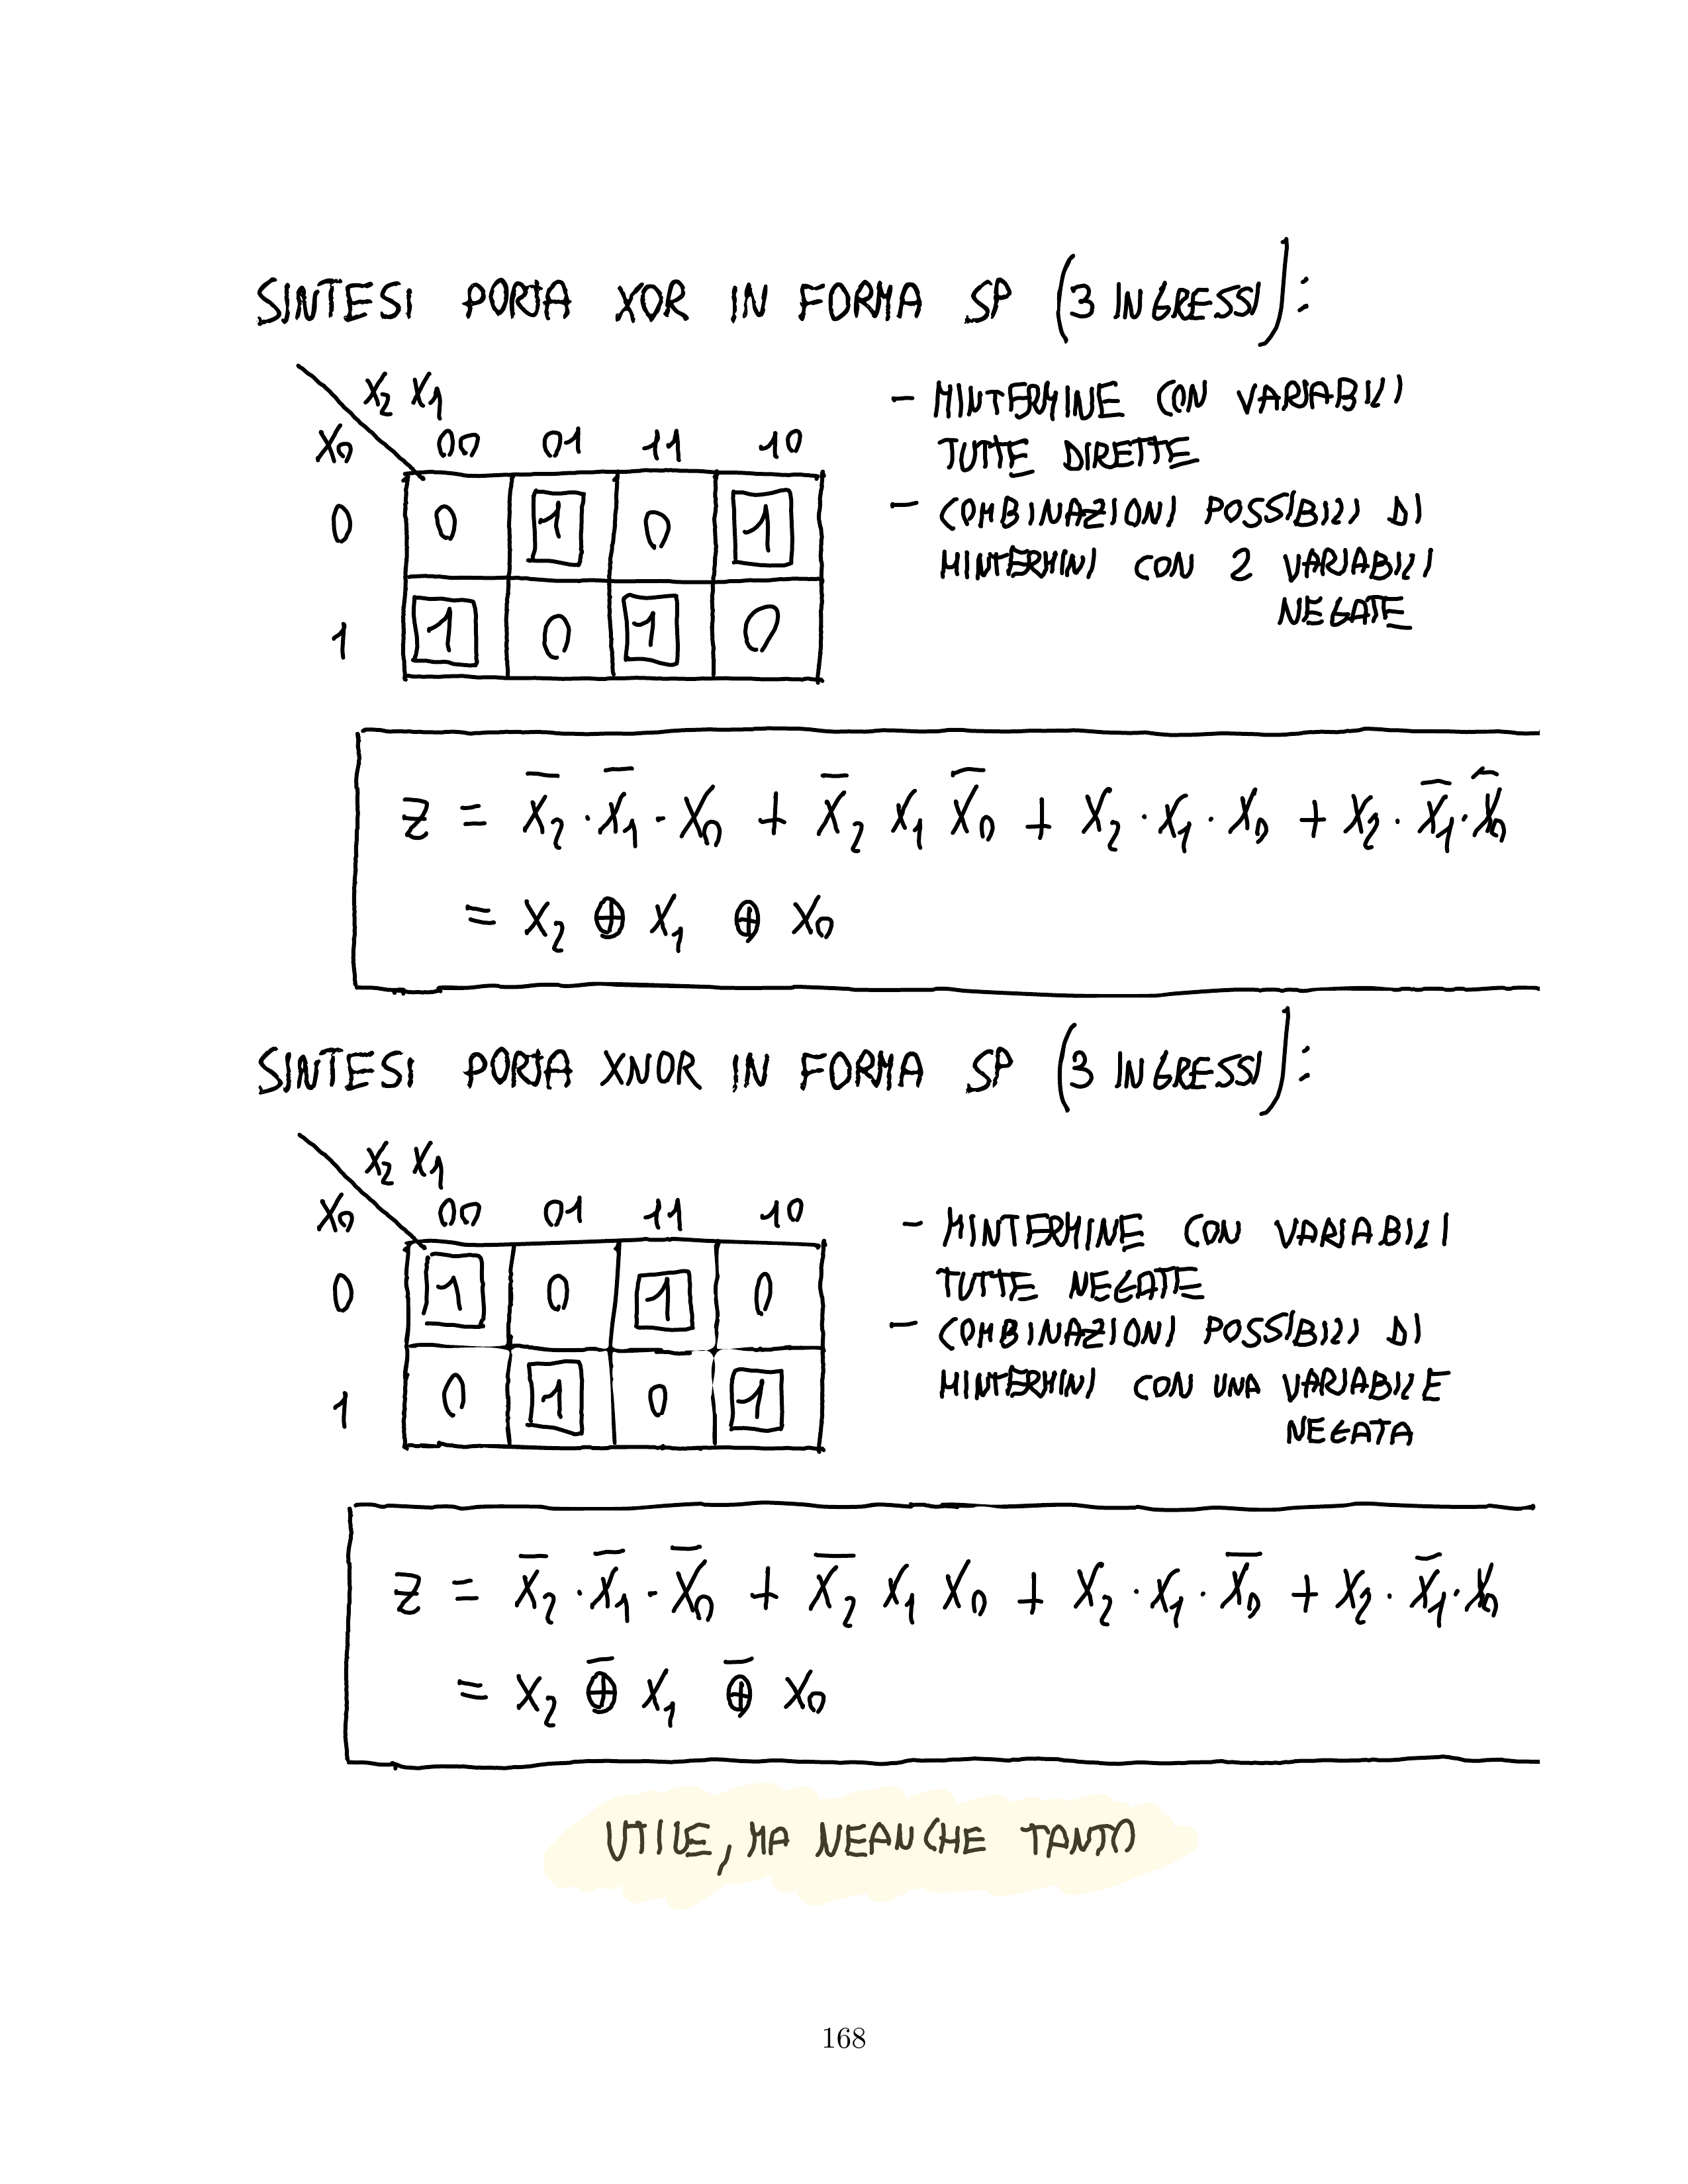 SINTESI PORTA XOR IN FORMA SP (3 INGRESSI):
X₂ X₁
X₀ 00 01 11 10
0 0 1 0 1
1 1 0 1 0
- MINTERMINE CON VARIABILI
TUTTE DIRETTE
- COMBINAZIONI POSSIBILI DI
MINTERMINI CON 2 VARIABILI
NEGATE
Z = X̅₂ · X̅₁ · X₀ + X̅₂ X₁ X̅₀ + X₂ · X₁ · X₀ + X₂ · X̅₁ · X̅₀
= X₂ ⊕ X₁ ⊕ X₀
SINTESI PORTA XNOR IN FORMA SP (3 INGRESSI):
X₂ X₁
X₀ 00 01 11 10
0 1 0 1 0
1 0 1 0 1
- MINTERMINE CON VARIABILI
TUTTE NEGATE
- COMBINAZIONI POSSIBILI DI
MINTERMINI CON UNA VARIABILE
NEGATA
Z = X̅₂ · X̅₁ · X̅₀ + X̅₂ X₁ X₀ + X₂ · X₁ · X̅₀ + X₂ · X̅₁ · X₀
= X₂ ⊕̅ X₁ ⊕̅ X₀
UTILE, MA NEANCHE TANTO
168